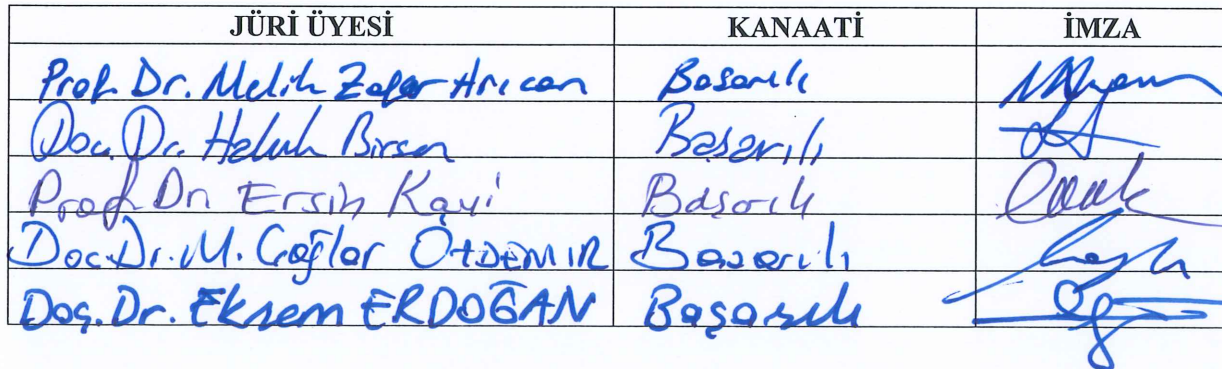 JÜRİ ÜYESİ KANAATİ İMZA
Prof. Dr. Melih Zafer Arıcan Başarılı
Doç. Dr. Haluk Birsen Başarılı
Prof. Dr. Ersin Başarılı
Doç. Dr. M. Çağlar Başarılı
Doç. Dr. Ekrem ERDOĞAN Başarılı